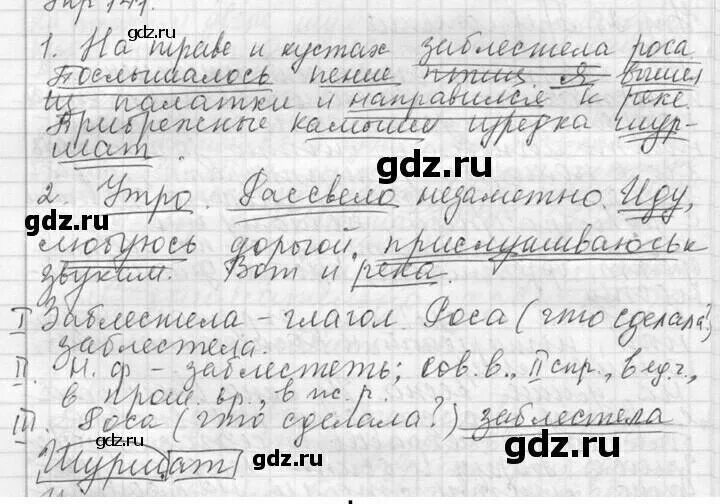 Упр 141.
1. На траве и кустах заблестела роса
Послышалось пение птиц. Я вышел
из палатки и направился к реке.
Прибрежные камыши изредка шур-
шат.
gdz.ru
2. Утро. Рассвело незаметно. Иду,
gdz.ru
любуюсь дорогой, прислушиваюсь к
звукам. Вот и река.
gdz.ru
I Заблестела – глагол. Роса (что сделала?)
заблестела.
II. Н. ф – заблестеть; сов. в., II спр., в ед. ч.,
в прош. вр., в ж. р.
III. Роса (что сделала?) заблестела
gdz.ru
gdz.ru
Шуршат
gdz.ru